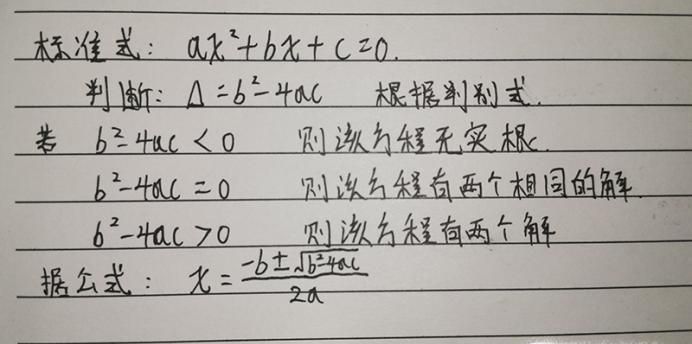 标准式: ax²+bx+c=0.
判断: Δ=b²-4ac 根据判别式.
若 b²-4ac<0 则该方程无实根.
b²-4ac=0 则该方程有两个相同的解.
b²-4ac>0 则该方程有两个解
据公式: x=(-b±√(b²-4ac))/2a